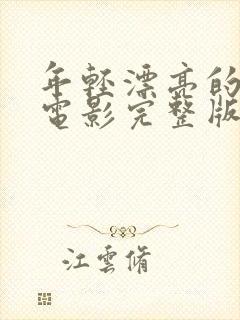 年轻漂亮的
电影完整版
江云脩